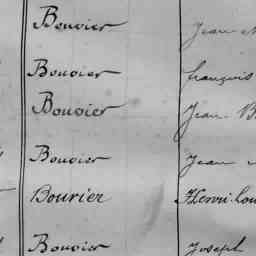 Bouvier Jean
Bouvier françois
Bouvier Jean B
Bouvier Jean
Bouvier Henri Lou
Bouvier Joseph